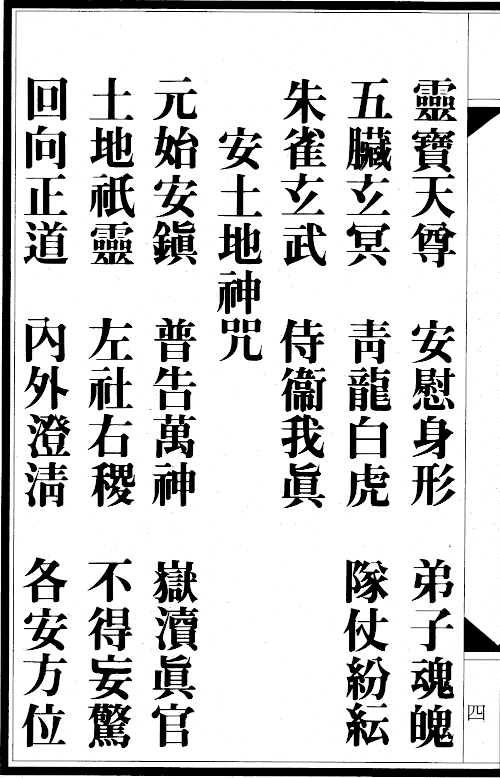 靈寶天尊　安慰身形　弟子魂魄
五臟玄冥　靑龍白虎　隊仗紛紜
朱雀玄武　侍衞我眞
安土地神咒
元始安鎭　普告萬神　嶽瀆眞官
土地祇靈　左社右稷　不得妄驚
回向正道　內外澄淸　各安方位
四